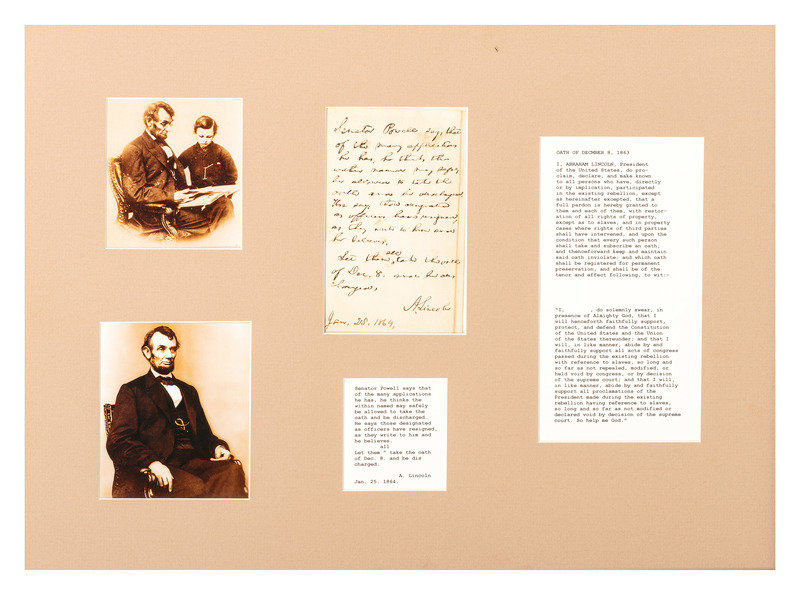 Senator Powell says that
of the many applications
he has, he thinks the
within named may safely
be allowed to take the
oath and be discharged.
He says those designated
as officers have resigned,
as they write to him and
he believes.
all
Let them take the oath
of Dec. 8. and be dis
charged.
A. Lincoln
Jan. 25. 1864.
Senator Powell says that
of the many applications
he has, he thinks the
within named may safely
be allowed to take the
oath and be discharged.
He says those designated
as officers have resigned,
as they write to him and
he believes.
all
Let them ^ take the oath
of Dec. 8. and be dis
charged.
A. Lincoln
Jan. 25. 1864.
OATH OF DECMBER 8, 1863
I, ABRAHAM LINCOLN, President
of the United States, do pro-
claim, declare, and make known
to all persons who have, directly
or by implication, participated
in the existing rebellion, except
as hereinafter excepted, that a
full pardon is hereby granted to
them and each of them, with restor-
ation of all rights of property,
except as to slaves, and in property
cases where rights of third parties
shall have intervened, and upon the
condition that every such person
shall take and subscribe an oath,
and thenceforward keep and maintain
said oath inviolate; and which oath
shall be registered for permanent
preservation, and shall be of the
tenor and affect following, to wit:-
"I, , do solemnly swear, in
presence of Almighty God, that I
will henceforth faithfully support,
protect, and defend the Constitution
of the United States and the Union
of the States thereunder; and that I
will, in like manner, abide by and
faithfully support all acts of congress
passed during the existing rebellion
with reference to slaves, so long and
so far as not repealed, modified, or
held void by congress, or by decision
of the supreme court; and that I will,
in like manner, abide by and faithfully
support all proclamations of the
President made during the existing
rebellion having reference to slaves,
so long and so far as not modified or
declared void by decision of the supreme
court. So help me God."